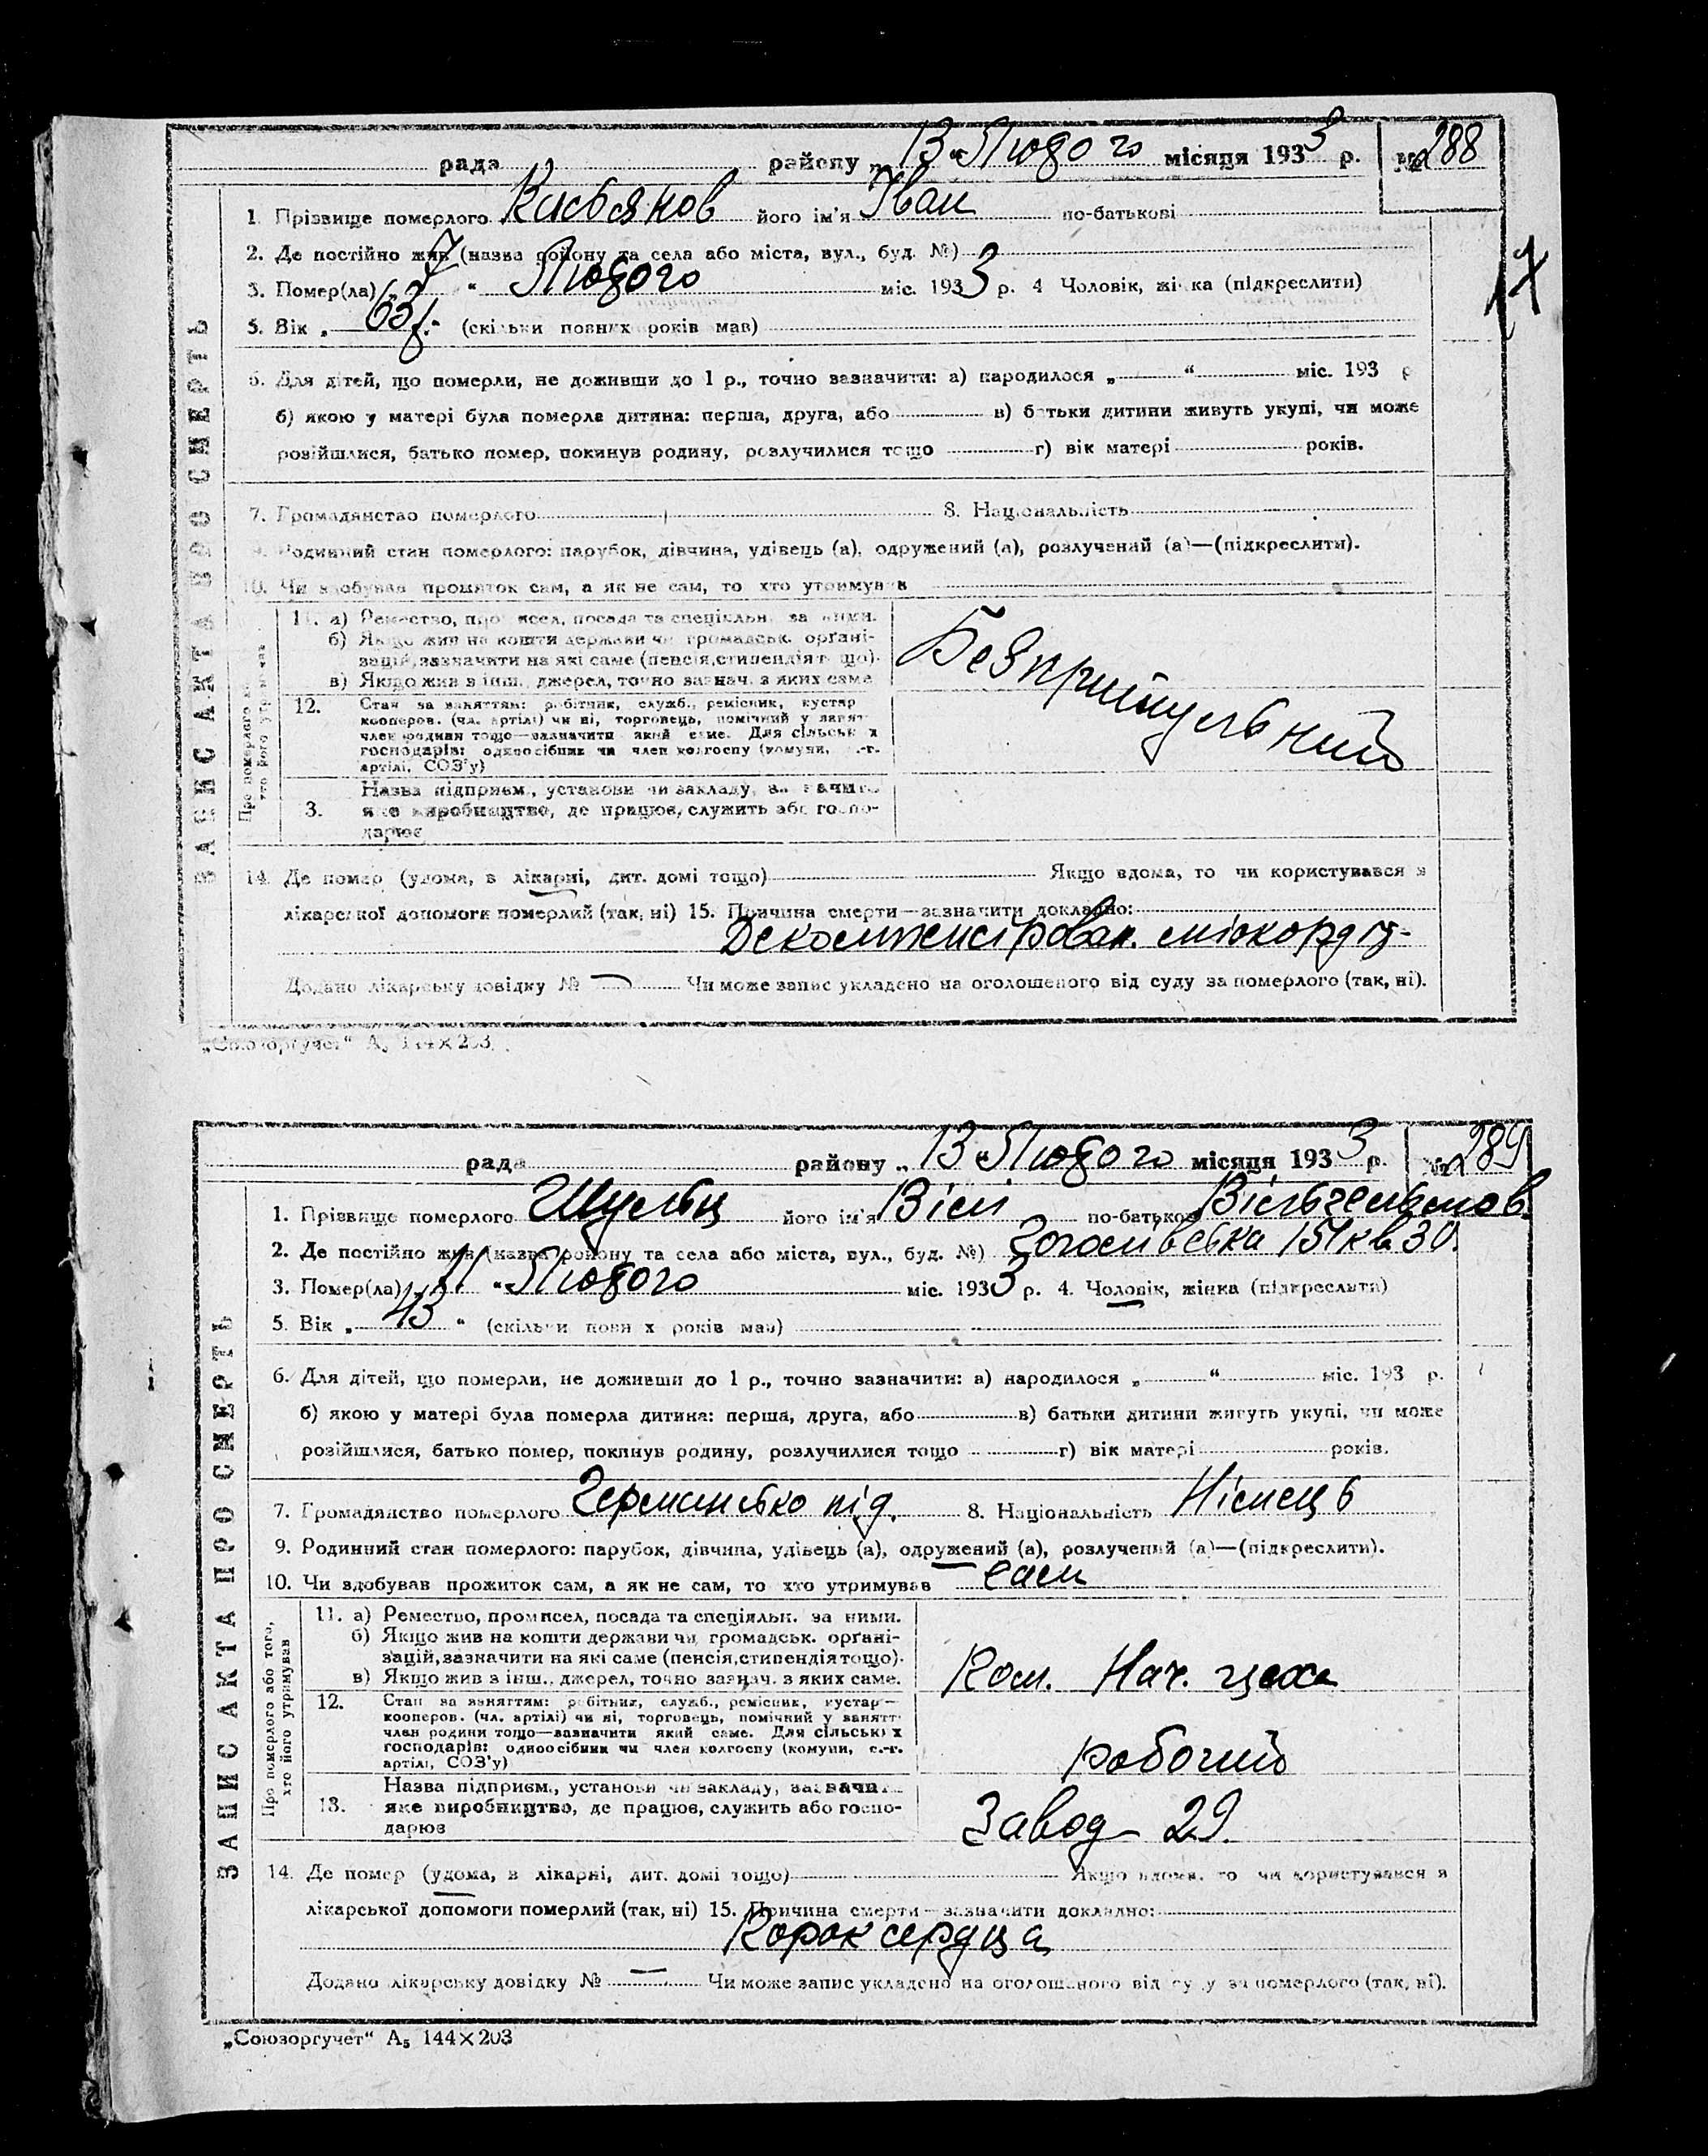 рада району „ 13 “ Лютого місяця 1933 р. № 288
1. Прізвище померлого Касьянов його ім'я Іван по-батькові
2. Де постійно жив (назва району та села або міста, вул., буд. №)
3. Помер(ла) „ 7 “ Лютого міс. 1933 р. 4 Чоловік, жінка (підкреслити)
5. Вік „ 63 р. (скільки повних років мав)
6. Для дітей, що померли, не доживши до 1 р., точно зазначити: а) народилося „ “ міс. 193 р
б) якою у матері була померла дитина: перша, друга, або в) батьки дитини живуть укупі, чи може
розійшлися, батько помер, покинув родину, розлучилися тощо г) вік матері років.
7. Громадянство померлого 8. Національність
9. Родинний стан померлого: парубок, дівчина, удівець (а), одружений (а), розлучений (а)—(підкреслити).
10. Чи здобував прожиток сам, а як не сам, то хто утримував
ЗАПИС АКТА ПРО СМЕРТЬ
11. а) Ремество, промисел, посада та спеціяльн. за ними.
б) Якщо жив на кошти держави чи громадськ. органі-
зацій, зазначити на які саме (пенсія, стипендія тощо).
в) Якщо жив з інш., джерел, точно зазнач. з яких саме
Безпритульний
12. Стан за заняттям: робітник, служб., ремісник, кустар
кооперов. (чл. артілі) чи ні, торговець, помічний у занят
член родини тощо—зазначити який саме. Для сільськ х
господарів: одноосібник чи член колгоспу (комуни, с.-г.
артілі, СОЗ'у)
Назва підприєм., установи чи закладу, зазначити
3. яке виробництво, де працює, служить або госпо-
дарює
14. Де помер (удома, в лікарні, дит. домі тощо) Якщо вдома, то чи користувався з
лікарської допомоги померлий (так, ні) 15. Причина смерти—зазначити докладно:
Декомпенсірован. міокордіт-
Додано лікарську довідку № — Чи може запис укладено на оголошеного від суду за померлого (так, ні).
„Союзоргучет“ А₅ 144×203
рада району „ 13 “ Лютого місяця 1933 р. № 289
1. Прізвище померлого Шульц його ім'я Вілі по-батькові Вільгельмов.
2. Де постійно жив (назва району та села або міста, вул., буд. №) Голосіївська 151 кв. 30.
3. Помер(ла) „ 11 “ Лютого міс. 1933 р. 4. Чоловік, жінка (підкреслити)
5. Вік „ 43 “ (скільки повних років мав)
6. Для дітей, що померли, не доживши до 1 р., точно зазначити: а) народилося „ “ міс. 193 р.
б) якою у матері була померла дитина: перша, друга, або в) батьки дитини живуть укупі, чи може
розійшлися, батько помер, покинув родину, розлучилися тощо г) вік матері років.
7. Громадянство померлого Германсько під. 8. Національність Німець
9. Родинний стан померлого: парубок, дівчина, удівець (а), одружений (а), розлучений (а)—(підкреслити).
10. Чи здобував прожиток сам, а як не сам, то хто утримував сам
ЗАПИС АКТА ПРО СМЕРТЬ
Про померлого або того,
хто його утримував
11. а) Ремество, промисел, посада та спеціяльн. за ними.
б) Якщо жив на кошти держави чи громадськ. органі-
зацій, зазначити на які саме (пенсія, стипендія тощо).
в) Якщо жив з інш., джерел, точно зазнач. з яких саме.
Пом. Нач. цеха
12. Стан за заняттям: робітник, служб., ремісник, кустар—
кооперов. (чл. артілі) чи ні, торговець, помічний у занятт
член родини тощо—зазначити який саме. Для сільських
господарів: одноосібник чи член колгоспу (комуни, с.-г.
артілі, СОЗ'у)
робочий
Назва підприєм., установи чи закладу, зазначити
13. яке виробництво, де працює, служить або госпо-
дарює
Завод 29.
14. Де помер (удома, в лікарні, дит. домі тощо) Якщо вдома, то чи користувався з
лікарської допомоги померлий (так, ні) 15. Причина смерти—зазначити докладно:
Порок сердца
Додано лікарську довідку № — Чи може запис укладено на оголошеного від суду за померлого (так, ні).
„Союзоргучет“ А₅ 144×203